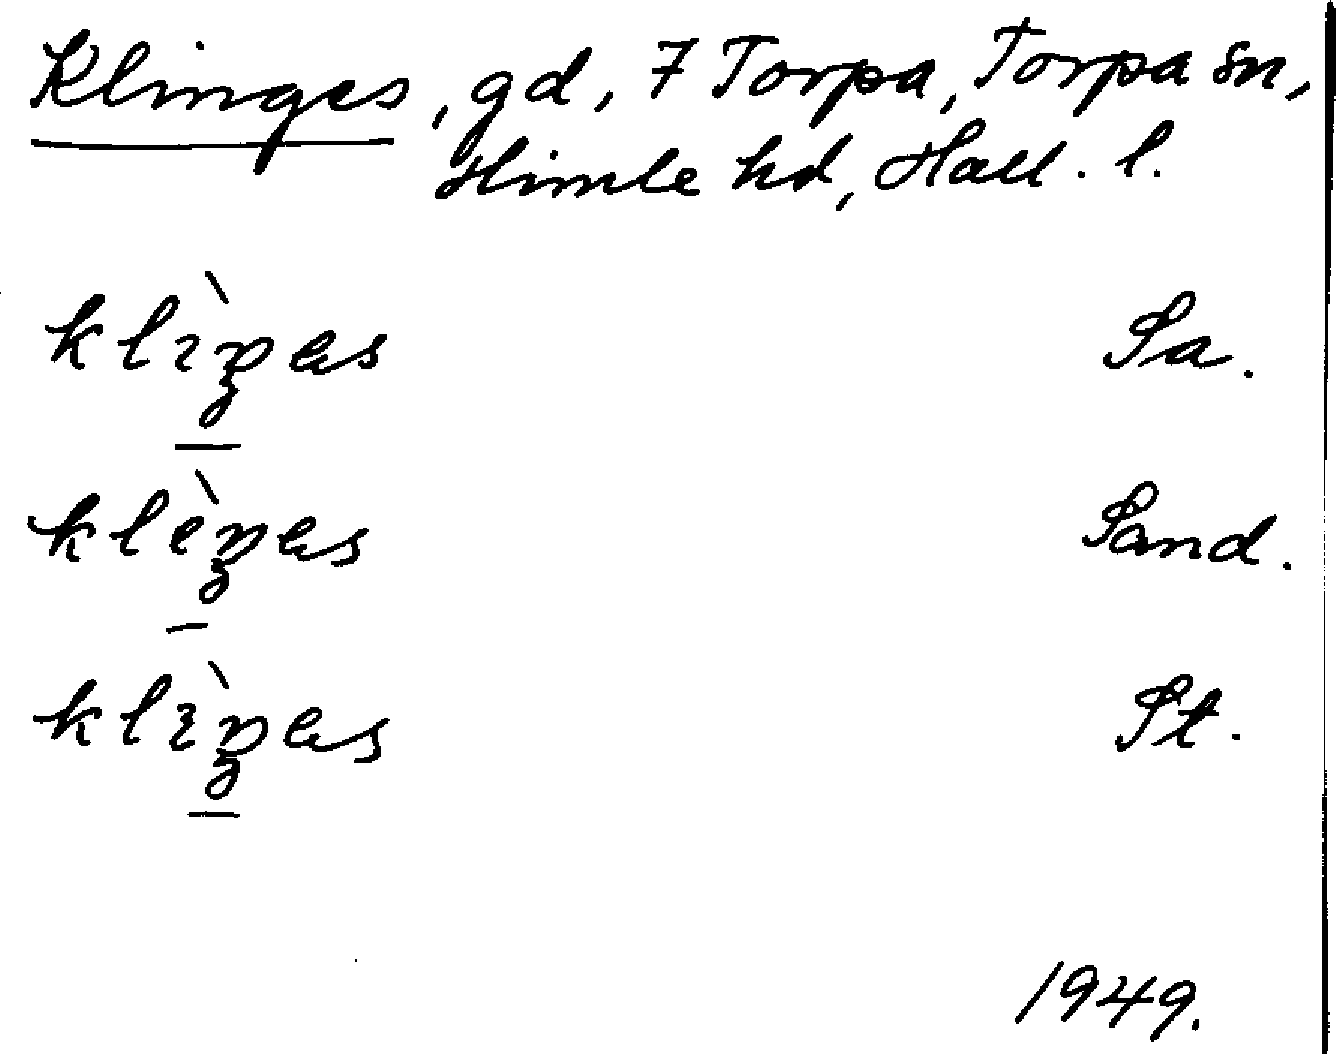 Klinges, gd, 7 Torpa, Torpa sn,
Himle hd, Hall. l.
klìŋ̲əs Sa.
klèŋ̲əs Sand.
klìŋ̲əs St.
1949.